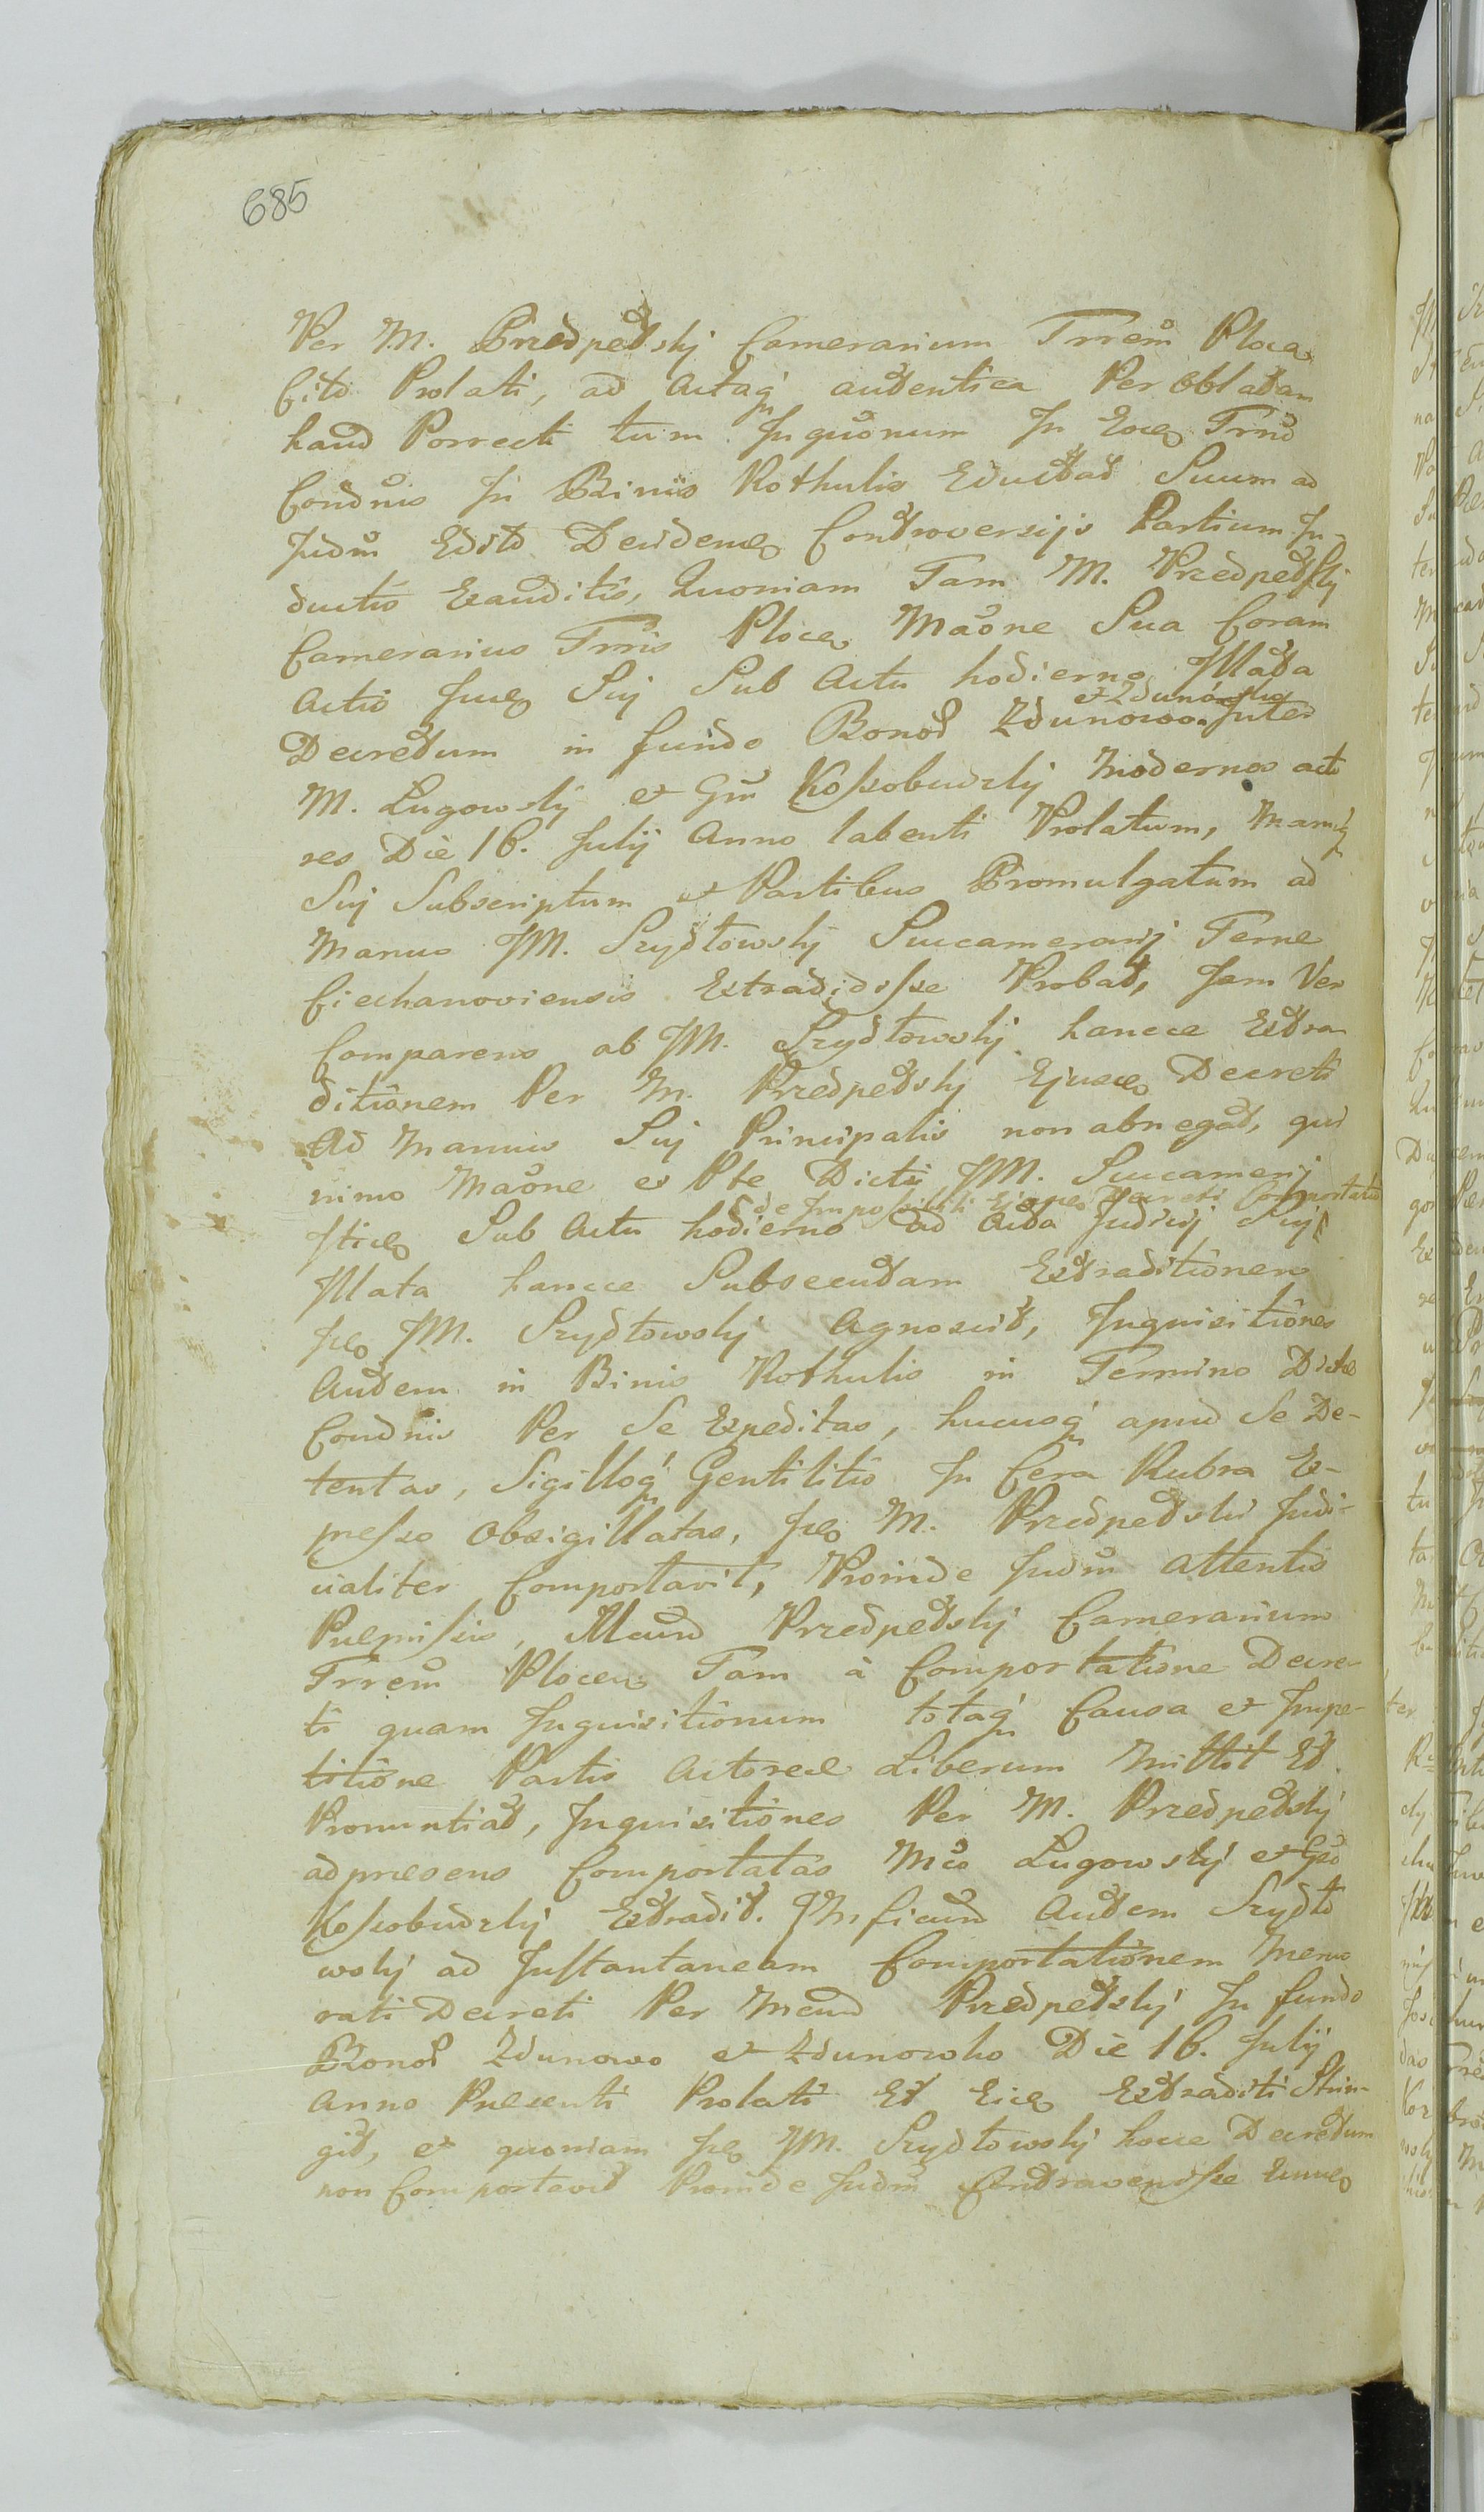 685
Per M. Przedpełski Camerarium Trrem Ploce
Citò Prolati, ad Actaq authentica Per Oblatam
haud Porrecti tum Inquonum In Eoce Trno
Condnis In Binis Rothulis Eductat Suum ad
Judm Edito Decidene Controversijs Partium In-
ductis Exauditis, Quoniam Tam M. Przedpełskj
Camerarius Trris Ploce Maone Sua Coram
Actis Juce Suj Sub Actu hodierno Illata
Decretum in fundo Bonor Zdunowo Inter
et Zdunowko
M. Lugowskj et Gm Kossobudzkj Modernos acto
res Die 16. Julij Anno labenti Prolatum, Manuq
Suj Subscriptum et Partibus Promulgatum ad
Manus JM. Szydłowskj Succamerarij Terrae
Ciechanoviensis Extradidisse Probat, Jam Vero
Comparens ab JM. Szydłowskj hancce Extra
ditionem Per M. Przedpełskj Ejusce Decreti
Ad Manus Suj Principalis non abnegat, qui
nimo Maone ex Pte Dicti JM. Succamerj
de Impossibili Ejusce Decreti Comportatio
Istice Sub Actu hodierno ad Acta Judicij Suj
Illata hancce Subsecutam Extraditionem
Ipse JM. Szydłowskj Agnoscit, Inquisitiones
Autem in Binis Rothulis in Termino Dictae
Condnis Per Se Expeditas, hucusq apud Se De-
tentas, Sigilloq Gentilitio In Cera Rubra Ex-
presso Obsigillatas, Ipse M. Przedpełski Judi-
cialiter Comportavit, Proinde Judm Attentis
Praemissis, Mcum Przedpełskj Camerarium
Trrem Ploceu Tam à Comportatione Decre-
ti quam Inquisitionum totaq Causa et Impe-
titione Partis Actoreae Liberum Mittit Et
Pronuntiat, Inquisitiones Per M. Przedpełskj
ad praesens Comportatas Mcis Lugowskj et Gso
Kossobudzkj Extradit. JMficum Autem Szydło
wskj ad Instantaneam Comportationem Memo
rati Decreti Per Mcum Przedpełskj In fundo
Bonor Zdunowo et Zdunowko Die 16. Julij
Anno Praesenti Prolati Et Eice Extraditi Strin-
git, et quoniam Ipse JM. Szydłowskj hocce Decretum
non Comportavit Proinde Judm Contravenisse Eunce